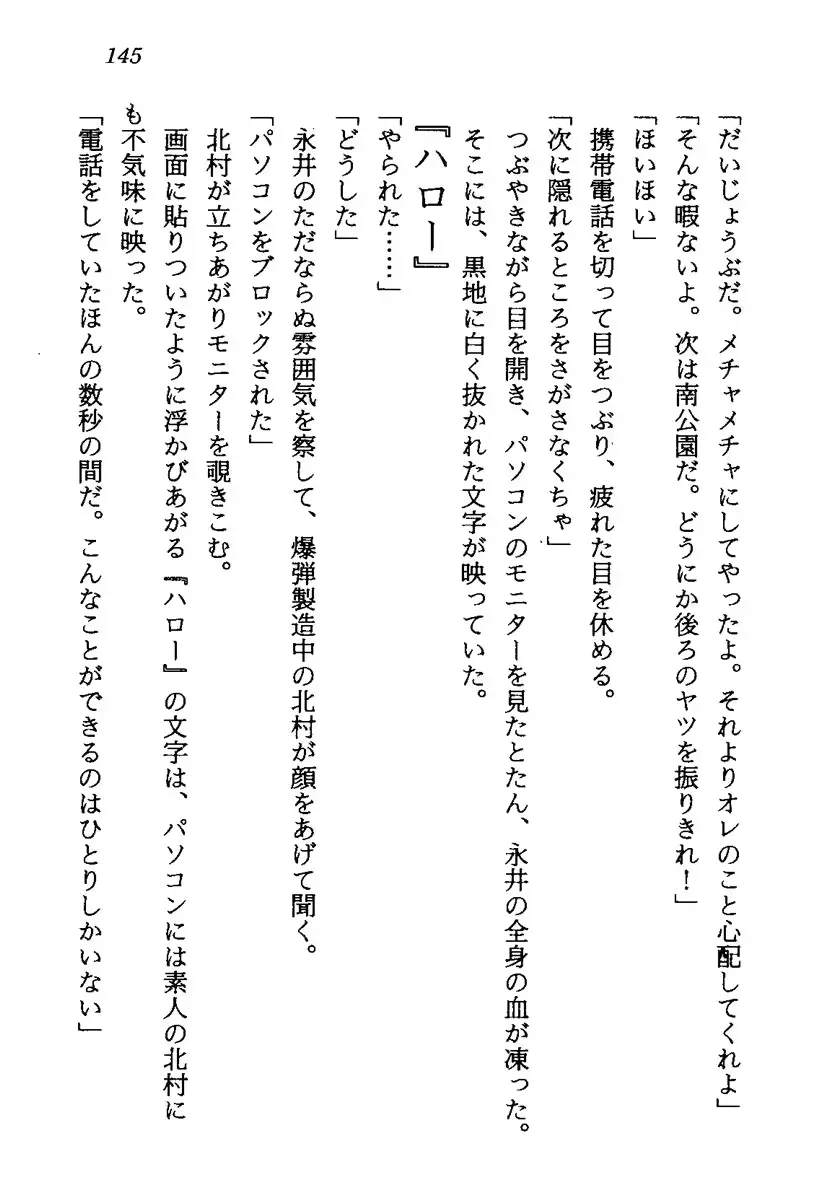 145
「だいじょうぶだ。メチャメチャにしてやったよ。それよりオレのこと心配してくれよ」
「そんな暇ないよ。次は南公園だ。どうにか後ろのヤツを振りきれ！」
「ほいほい」
　携帯電話を切って目をつぶり、疲れた目を休める。
「次に隠れるところをさがさなくちゃ」
　つぶやきながら目を開き、パソコンのモニターを見たとたん、永井の全身の血が凍った。
　そこには、黒地に白く抜かれた文字が映っていた。
『ハロー』
「やられた……」
「どうした」
　永井のただならぬ雰囲気を察して、爆弾製造中の北村が顔をあげて聞く。
「パソコンをブロックされた」
　北村が立ちあがりモニターを覗きこむ。
　画面に貼りついたように浮かびあがる『ハロー』の文字は、パソコンには素人の北村に
も不気味に映った。
「電話をしていたほんの数秒の間だ。こんなことができるのはひとりしかいない」